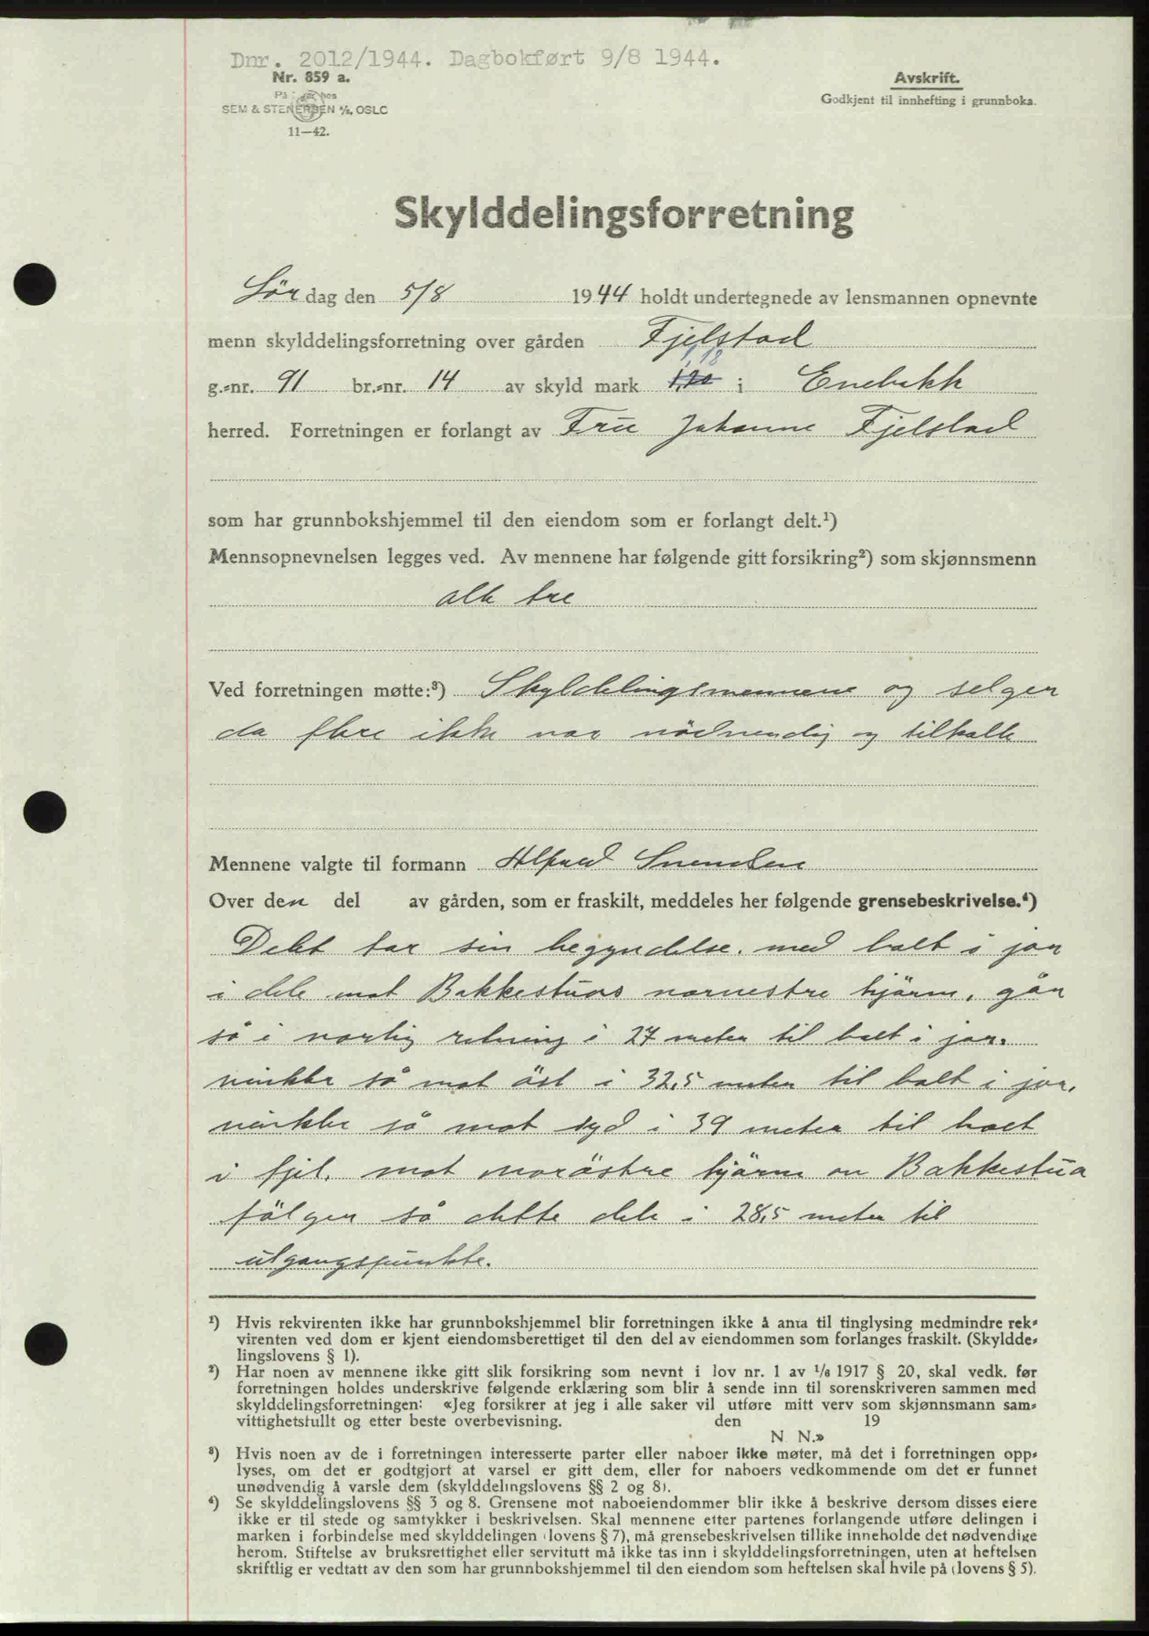 Dnr. 2012/1944. Dagbokført 9/8 1944.
Nr. 859 a.
SEM & STENERSEN A/S, OSLO
11—42.
Avskrift.
Godkjent til innhefting i grunnboka.
Skylddelingsforretning
Lör dag den 5/8 1944 holdt undertegnede av lensmannen opnevnte
menn skylddelingsforretning over gården Fjelstad
1,18
g.-nr. 91 br.-nr. 14 av skyld mark 1,20 i Enebakk
herred. Forretningen er forlangt av Frü Johanne Fjelstad
som har grunnbokshjemmel til den eiendom som er forlangt delt.¹)
Mennsopnevnelsen legges ved. Av mennene har følgende gitt forsikring²) som skjønnsmenn
alle tre
Ved forretningen møtte:³) Skylddelingsmennene og selger
da flere ikke var nödvendig og tilkalle
Mennene valgte til formann Alfred Svendsen
Over den del av gården, som er fraskilt, meddeles her følgende grensebeskrivelse.⁴)
Delet tar sin begyndelse med bolt i jor
i dele mot Bakkestuas norvestre hjörne, går
så i norlig retning i 27 meter til bolt i jor.
vinkler så mot öst i 32,5 meter til bolt i jor,
vinkler så mot syd i 39 meter til bolt
i fjel, mot noröstre hjörne av Bakkestua
fölger så dette dele i 28,5 meter til
utgangspunkte.
¹) Hvis rekvirenten ikke har grunnbokshjemmel blir forretningen ikke å anta til tinglysing medmindre rek-
virenten ved dom er kjent eiendomsberettiget til den del av eiendommen som forlanges fraskilt. (Skyldde-
lingslovens § 1).
²) Har noen av mennene ikke gitt slik forsikring som nevnt i lov nr. 1 av 1/6 1917 § 20, skal vedk. før
forretningen holdes underskrive følgende erklæring som blir å sende inn til sorenskriveren sammen med
skylddelingsforretningen: «Jeg forsikrer at jeg i alle saker vil utføre mitt verv som skjønnsmann sam-
vittighetsfullt og etter beste overbevisning. den 19
N. N.»
³) Hvis noen av de i forretningen interesserte parter eller naboer ikke møter, må det i forretningen opp-
lyses, om det er godtgjort at varsel er gitt dem, eller for naboers vedkommende om det er funnet
unødvendig å varsle dem (skylddelingslovens §§ 2 og 8).
⁴) Se skylddelingslovens §§ 3 og 8. Grensene mot naboeiendommer blir ikke å beskrive dersom disses eiere
ikke er til stede og samtykker i beskrivelsen. Skal mennene etter partenes forlangende utføre delingen i
marken i forbindelse med skylddelingen (lovens § 7), må grensebeskrivelsen tillike inneholde det nødvendige
herom. Stiftelse av bruksrettighet eller servitutt må ikke tas inn i skylddelingsforretningen, uten at heftelsen
skriftlig er vedtatt av den som har grunnbokshjemmel til den eiendom som heftelsen skal hvile på (lovens § 5).